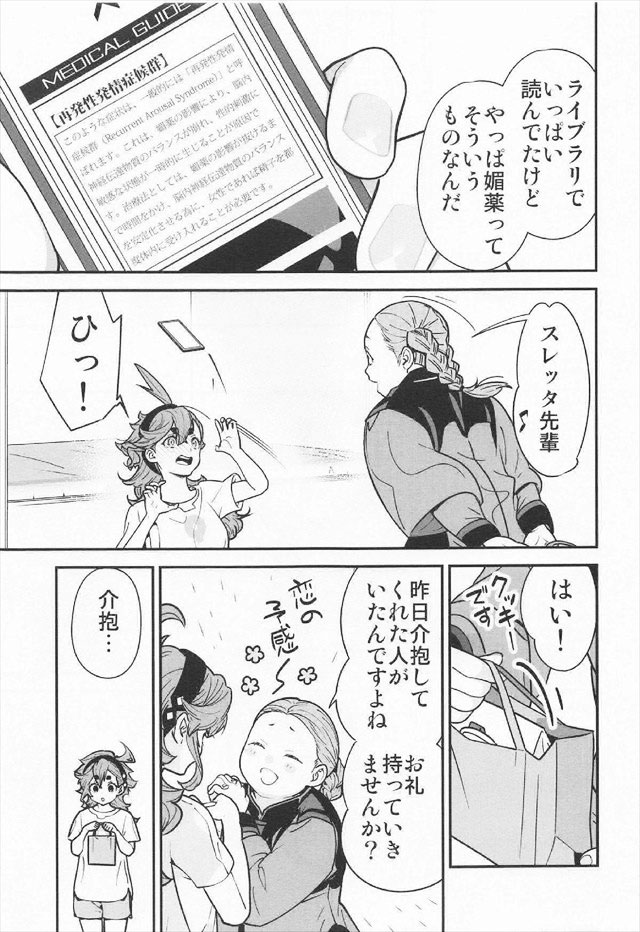 ライブラリで
いっぱい
読んでたけど
やっぱ媚薬って
そういう
ものなんだ
MEDICAL GUIDE
【再発性発情症候群】
このような症状は、一般的には「再発性発情
症候群（Recurrent Arousal Syndrome）」と呼
ばれます。これは、媚薬の影響により、脳内
神経伝達物質のバランスが崩れ、性的刺激に
敏感な状態が一時的に生じることが原因で
す。治療法としては、媚薬の影響が抜けるま
で時間をかけ、脳内神経伝達物質のバランス
を安定化させる為に、女性であれば精子を都
度体内に受け入れることが必要です。
スレッタ先輩
ひっ！
はい！
クッキー
です
昨日介抱して
くれた人が
いたんですよね
お礼
持っていき
ませんか？
恋の
予感～
介抱…